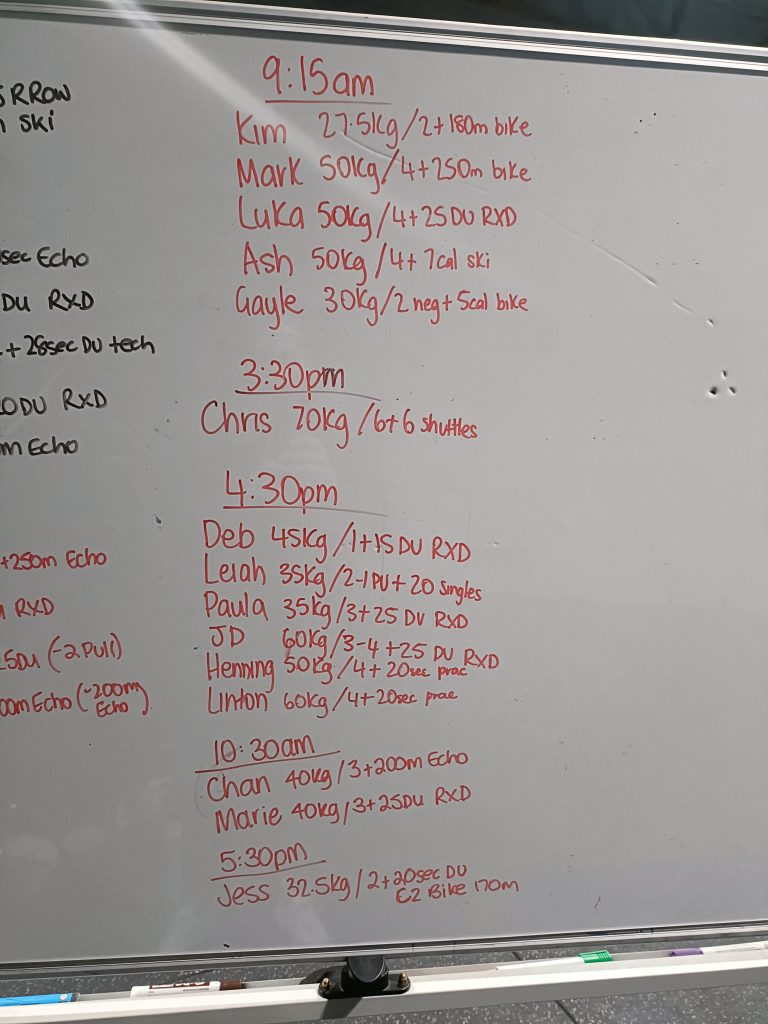 RROW
SKI
sec Echo
DU RXD
+28sec DU tech
DU RXD
m Echo
+250m Echo
RXD
5DU (-2 Pull)
00m Echo (-200m
Echo)
9:15am
Kim 27.5kg/2+180m bike
Mark 50kg/4+250m bike
Luka 50kg/4+25 DU RXD
Ash 50kg/4+7cal ski
Gayle 30kg/2 neg+5cal bike
3:30pm
Chris 70kg/6+6 shuttles
4:30pm
Deb 45kg/1+15 DU RXD
Leiah 35kg/2-1PU+20 Singles
Paula 35kg/3+25 DU RXD
JD 60kg/3-4+25 DU RXD
Henning 50kg/4+20sec prac
Linton 60kg/4+20sec prac
10:30am
Chan 40kg/3+200m Echo
Marie 40kg/3+25DU RXD
5:30pm
Jess 32.5kg/2+20sec DU
EZ Bike 170m